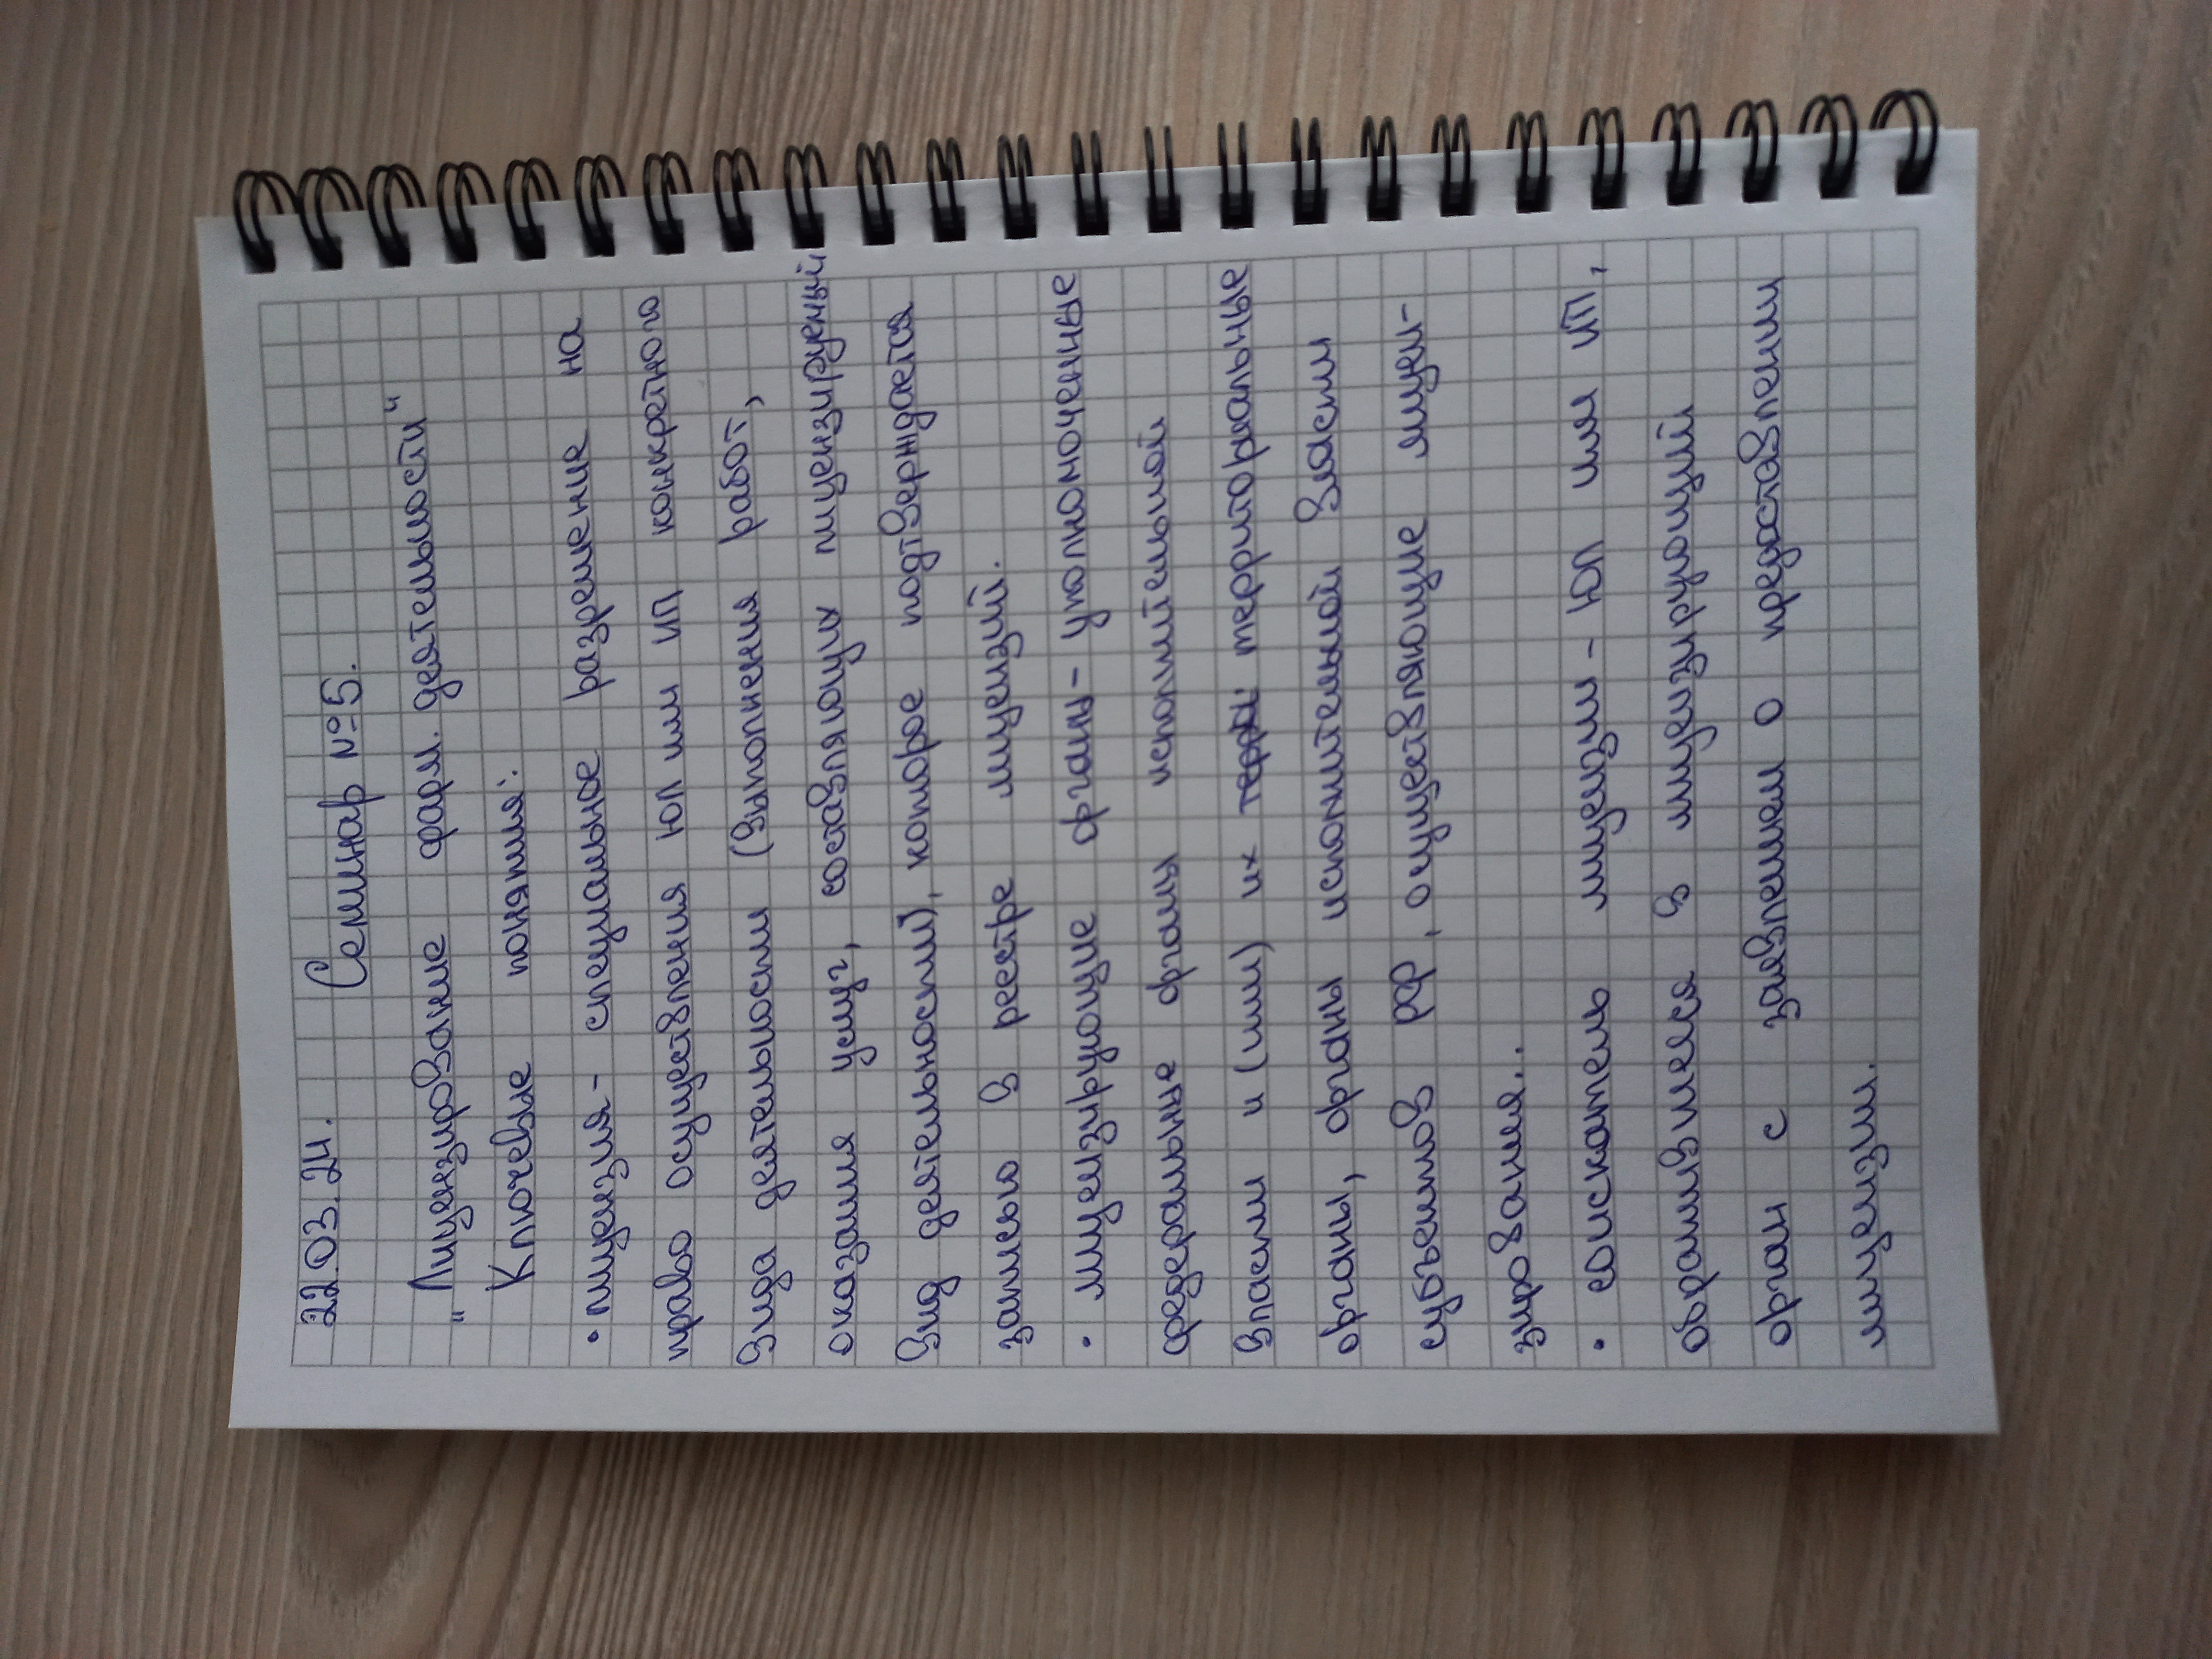 22.03.24.
Семинар №5.
"Лицензирование фарм. деятельности"
Ключевые понятия:
• лицензия - специальное разрешение на
право осуществления ЮЛ или ИП конкретного
вида деятельности (выполнения работ,
оказания услуг, составляющих лицензируемый
вид деятельности), которое подтверждается
записью в реестре лицензий.
• лицензирующие органы - уполномоченные
федеральные органы исполнительной
власти и (или) их территориальные
органы, органы исполнительной власти
субъектов РФ, осуществляющие лицен-
зирование..
• соискатель лицензии - ЮЛ или ИП,
обратившееся в лицензирующий
орган с заявлением о предоставлении
лицензии.